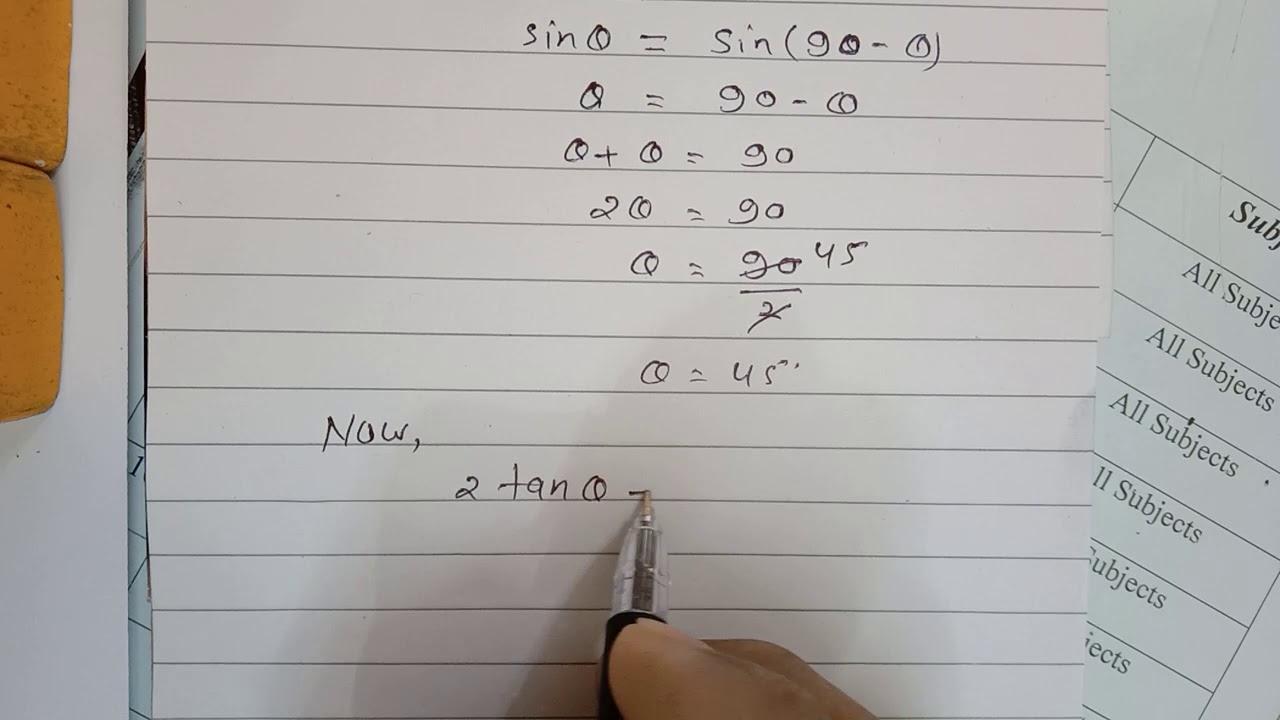 sinθ = sin(90 - θ)
θ = 90 - θ
θ + θ = 90
2θ = 90
θ = 90 45
2
θ = 45°
Now,
2 tan θ -
Sub
All Subje
All Subjects
All Subjects
ll Subjects
ubjects
jects
1